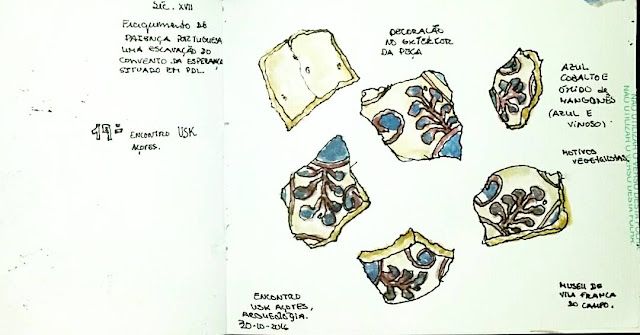 SÉC. XVII
FRAGMENTO DE
FAIANÇA PORTUGUESA
UMA ESCAVAÇÃO DO
CONVENTO DA ESPERANÇA
SITUADO EM PDL.
17º ENCONTRO USK
AÇORES.
DECORAÇÃO
NO EXTERIOR
DA PEÇA
AZUL
COBALTO E
ÓXIDO DE
MANGANÊS
(AZUL E
VINOSO).
MOTIVOS
VEGETALISTAS
ENCONTRO
USK AÇORES,
ARQUEOLOGIA.
30-10-2016
MUSEU DE
VILA FRANCA
DO CAMPO.